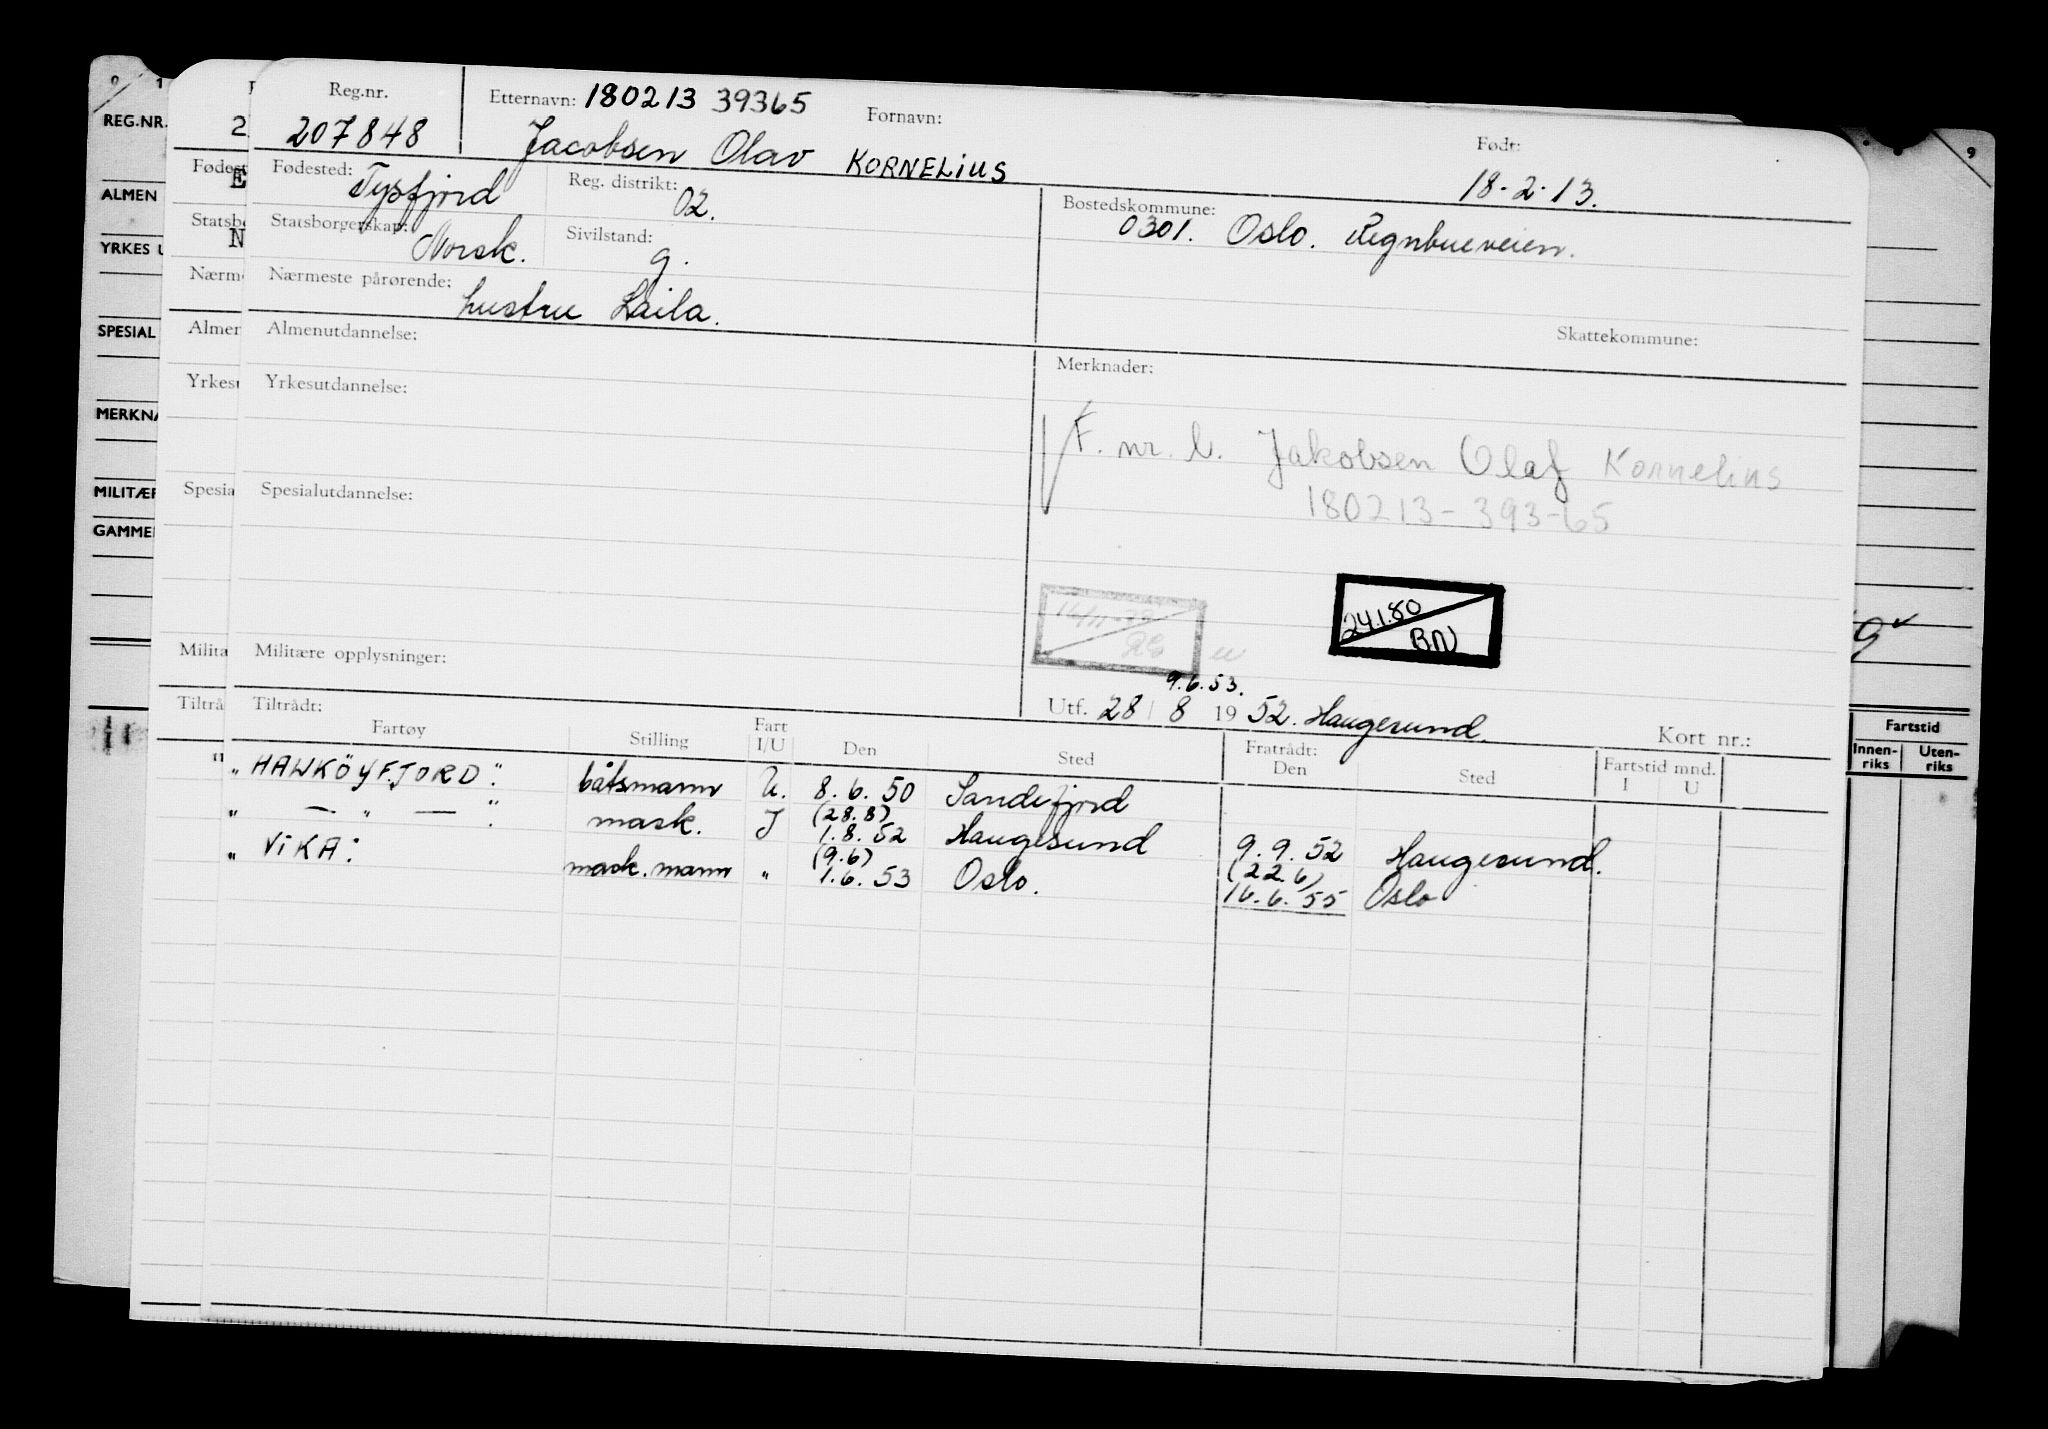 Reg.nr. Etternavn: 180213 39365 Fornavn: Født:
207848 Jacobsen Olav KORNELIUS 18-2-13.
Fødested: Tysfjord Reg. distrikt: 02. Bostedskommune: 0301. Oslo. Regnbueveien.
Statsborgerskap: Norsk. Sivilstand: g.
Nærmeste pårørende: hustru Laila.
Almenutdannelse: Skattekommune:
Yrkesutdannelse: Merknader:
F. nr. b. Jakobsen Olaf Kornelius
180213-393-65
Spesialutdannelse:
24.1.80
BN
Militære opplysninger:
9.6.53.
Utf. 28/8 1952. Haugesund. Kort nr.:
Tiltrådt: Fratrådt: Fartstid mnd.
Fartøy Stilling Fart I/U Den Sted Den Sted I U
"HAWKÖYFJORD". båtsmann U. 8.6.50 Sandefjord
" — " — " mask. I (28.8) 1.8.52 Haugesund 9.9.52 Haugesund.
"VIKA". mask.mann " (9.6) 1.6.53 Oslo. (22.6) 16.6.55 Oslo
REG.NR.
ALMEN
YRKES U
SPESIAL
MERKNA
MILITÆR
GAMMEL
Fødest
Statsbo
Nærme
Almen
Yrkesu
Spesia
Milita
Tiltrå
9
Fartstid
Innen-riks Uten-riks